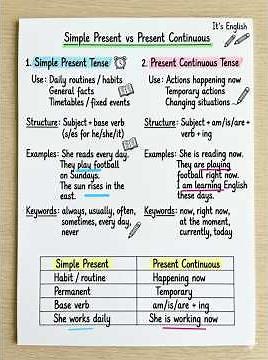 It's English
Simple Present vs Present Continuous
1. Simple Present Tense
Use: Daily routines / habits
General facts
Timetables / fixed events
Structure: Subject + base verb
(s/es for he/she/it)
Examples: She reads every day.
They play football
on Sundays.
The sun rises in the
east.
Keywords: always, usually, often,
sometimes, every day,
never
2. Present Continuous Tense
Use: Actions happening now
Temporary actions
Changing situations
Structure: Subject + am/is/are +
verb + ing
Examples: She is reading now.
They are playing
football right now.
I am learning English
these days.
Keywords: now, right now,
at the moment,
currently, today
Simple Present Present Continuous
Habit / routine Happening now
Permanent Temporary
Base verb am/is/are + ing
She works daily She is working now